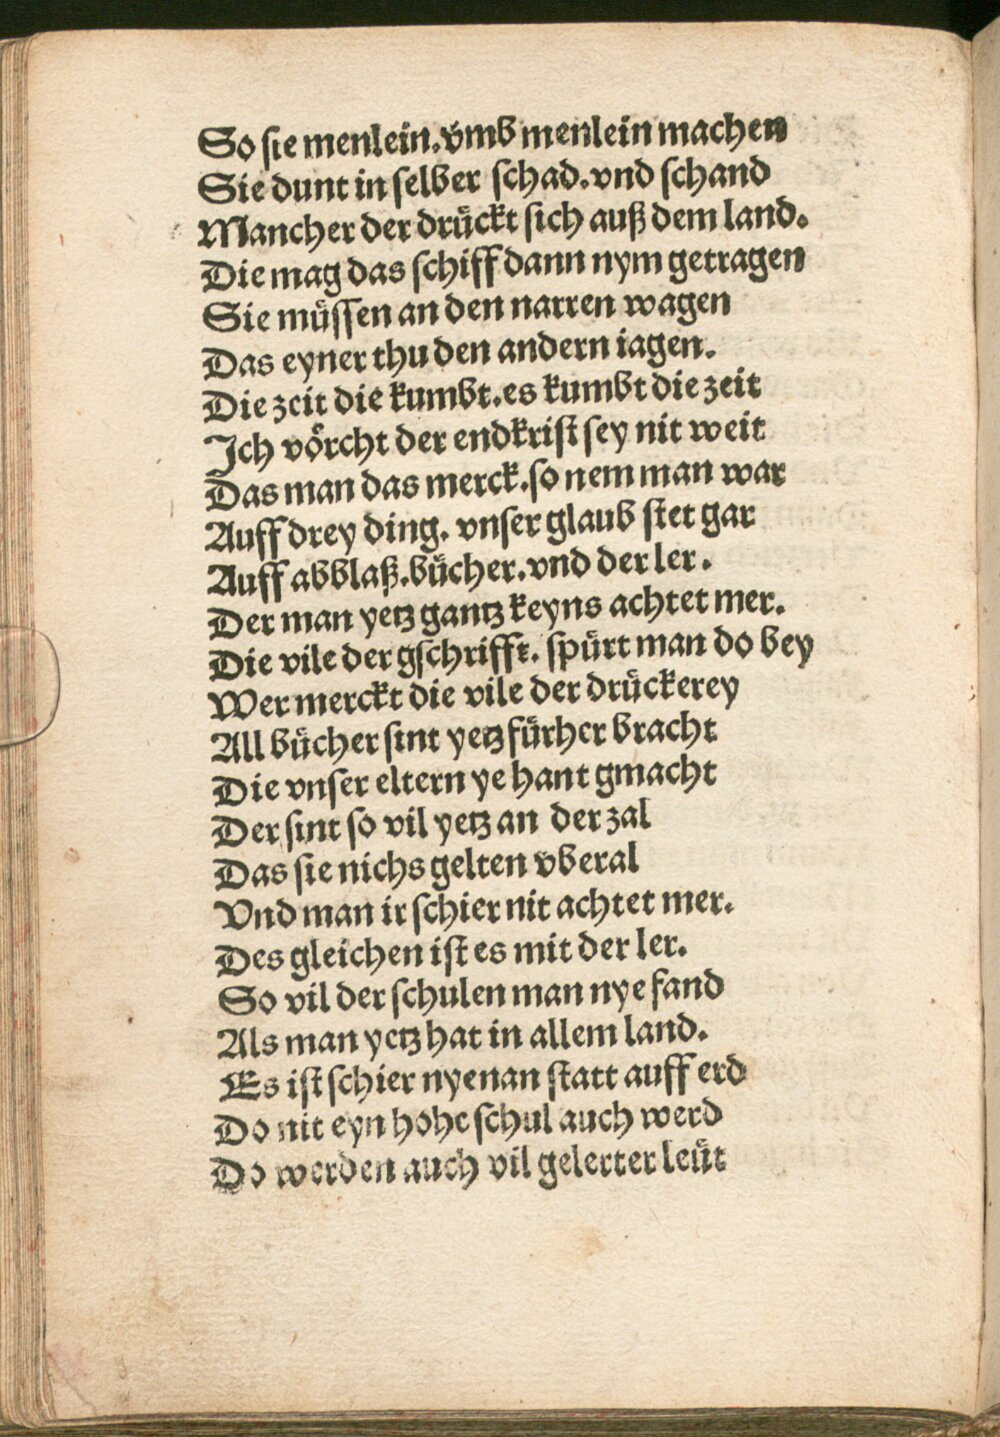 So sie menlein.vmb menlein machen
Sie dunt in selber schad.vnd schand
Mancher der drückt sich auß dem land.
Die mag das schiff dann nym getragen
Sie müssen an den narren wagen
Das eyner thu den andern iagen.
Die zeit die kumbt.es kumbt die zeit
Ich vörcht der endkrist sey nit weit
Das man das merck.so nem man war
Auff drey ding. vnser glaub stet gar
Auff abblaß.bücher.vnd der ler.
Der man yetz gantz keyns achtet mer.
Die vile der gschrifft. spürt man do bey
Wer merckt die vile der drückerey
All bücher sint yetz fürher bracht
Die vnser eltern ye hant gmacht
Der sint so vil yetz an der zal
Das sie nichs gelten vberal
Vnd man ir schier nit achtet mer.
Des gleichen ist es mit der ler.
So vil der schulen man nye fand
Als man yetz hat in allem land.
Es ist schier nyenan statt auff erd
Do nit eyn hohe schul auch werd
Do werden auch vil gelerter leüt